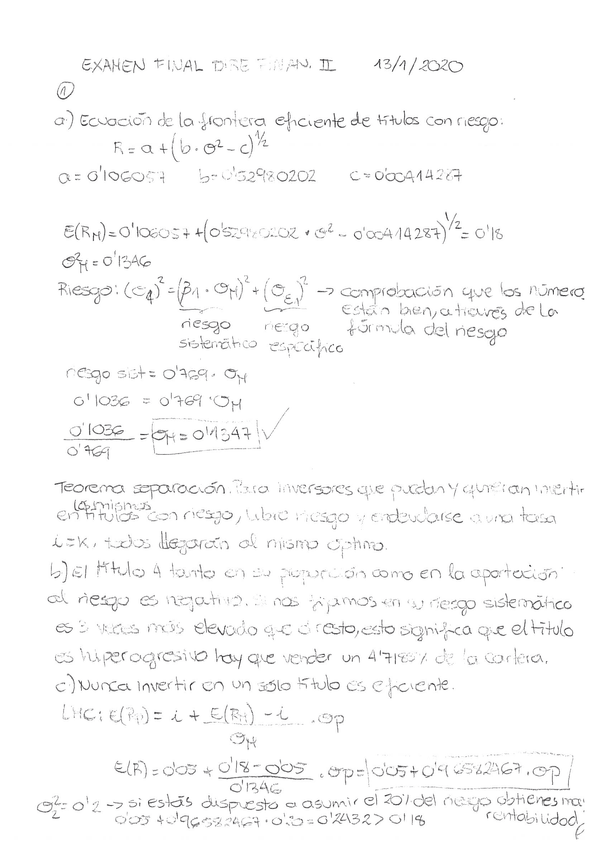 EXAMEN FINAL DIRE FINAN. II 13/1/2020
①
a) Ecuación de la frontera eficiente de títulos con riesgo:
R = a + (b · σ² - c)^1/2
a = 0'106057 b = 0'52980202 c = 0'00414287
E(R_M) = 0'106057 + (0'52980202 · σ² - 0'00414287)^1/2 = 0'18
σ²_M = 0'1346
Riesgo: (σ_A)² = (β_1 · σ_M)² + (σ_ε1)² → comprobación que los número
están bien, a través de la
riesgo riesgo fórmula del riesgo
sistemático específico
riesgo sist = 0'769 · σ_M
0'1036 = 0'769 · σ_M
0'1036 / 0'769 = σ_M = 0'1347 ✓
Teorema separación. Para inversores que puedan y quieran invertir
los mismos
en títulos con riesgo, libre riesgo y endeudarse a una tasa
i = k, todos llegarán al mismo óptimo.
b) El título 4 tanto en su proporción como en la aportación
al riesgo es negativo. Si nos fijamos en su riesgo sistemático
es 3 veces más elevado que el resto, esto significa que el título
es hiperagresivo hay que vender un 4'7185% de la cartera.
c) Nunca invertir en un sólo título es eficiente.
LMC: E(R_p) = i + (E(R_M) - i) / σ_M · σp
E(R) = 0'05 + (0'18 - 0'05) / 0'1346 · σp = 0'05 + 0'96582467 · σp
σ²_2 = 0'2 → si estás dispuesto a asumir el 20% del riesgo obtienes ma
0'05 + 0'96582467 · 0'20 = 0'2432 > 0'18 rentabilidad